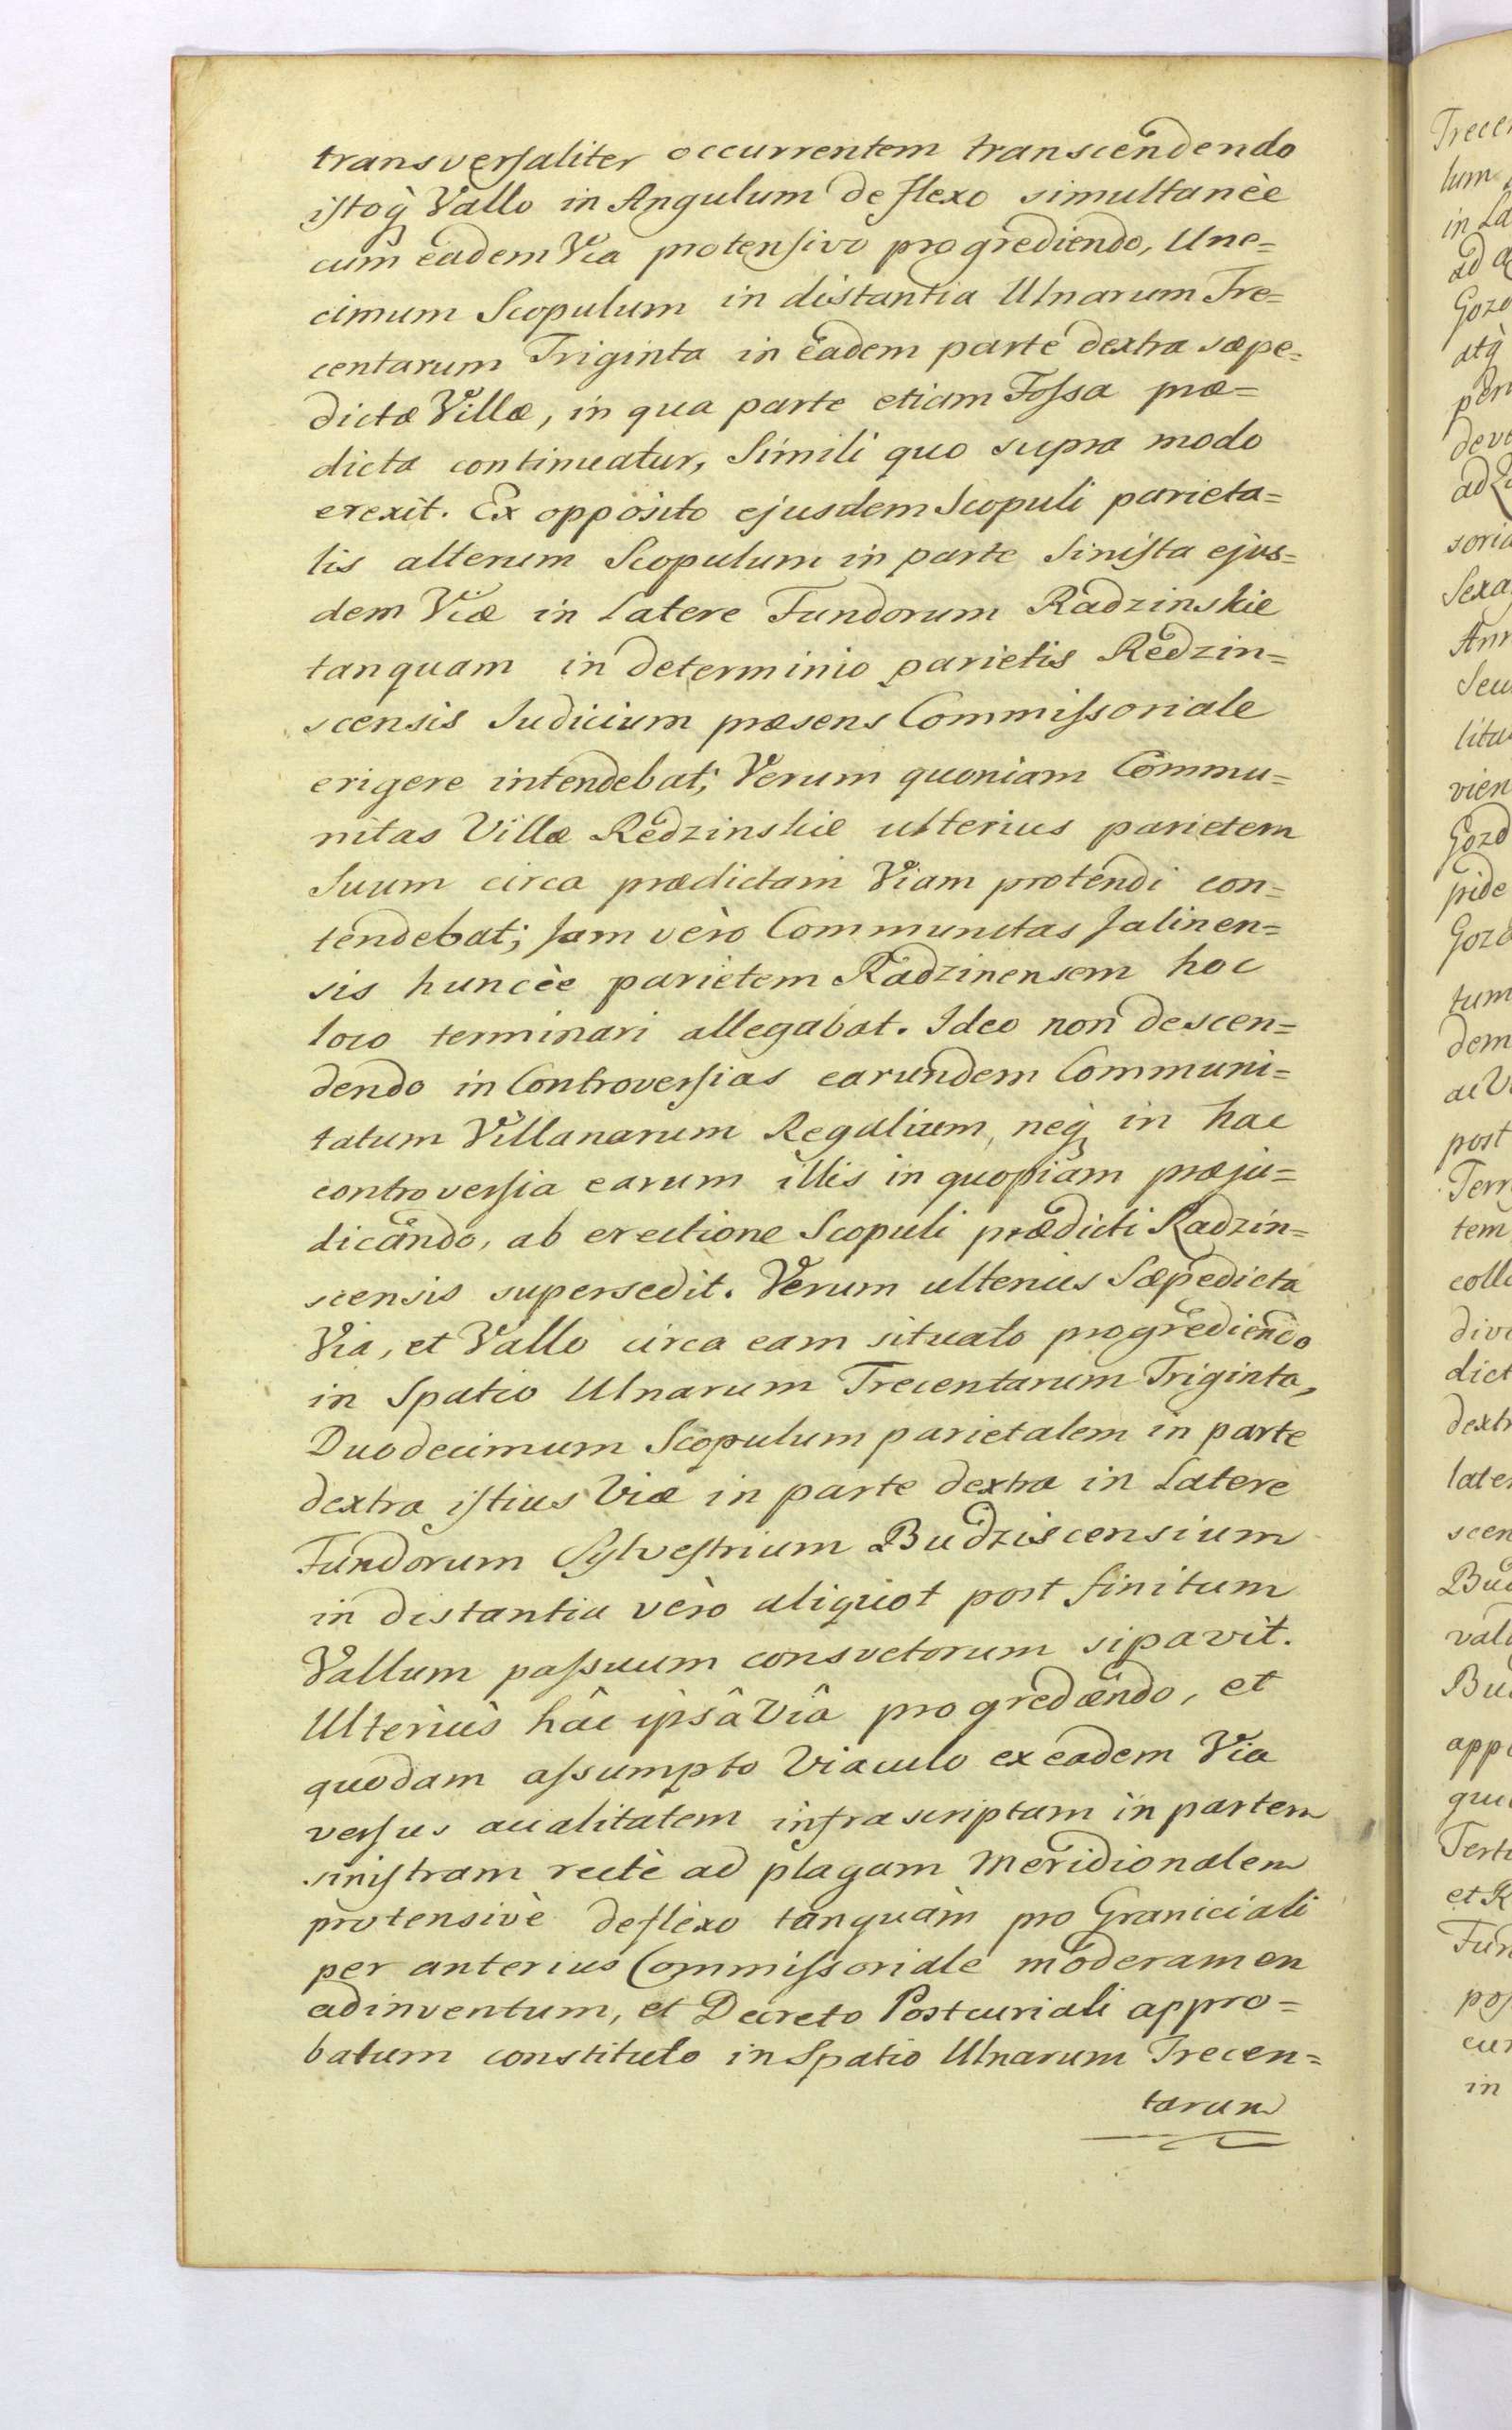 transversaliter occurrentem transcendendo
istoq̀ Vallo in Angulum deflexo simultanèe
cum eadem Via protensivo progrediendo, Une=
cimum Scopulum in distantia Ulnarum Tre=
centarum Triginta in eadem parte dextra sæpe=
dictæ Villæ, in qua parte etiam Fossa præ=
dicta continuatur, Simili quo supra modo
erexit. Ex opposito ejusdem Scopuli parieta=
lis alterum Scopulum in parte Sinista ejus=
dem Viæ in Latere Fundorum Radzinskie
tanquam in determinio parietis Redzin=
scensis Judicium præsens Commissoriale
erigere intendebat; Verum quoniam Commu=
nitas Villæ Redzinskie ulterius parietem
Suum circa prædictam Viam protendi con=
tendebat; Jam vèro Communitas Jalinen=
sis huncèe parietem Radzinensem hoc
loco terminari allegabat. Ideo non descen=
dendo in Controversias earundem Communi=
tatum Villanarum Regalium, neq̀ in hac
controversia earum illis in quopiam præju=
dicando, ab erectione Scopuli prædicti Radzin=
scensis supersedit. Verum ulterius Sæpedicta
Via, et Vallo circa eam situato progrediendo
in Spatio Ulnarum Trecentarum Triginta,
Duodecimum Scopulum parietalem in parte
dextra istius Viæ in parte dextra in Latere
Fundorum Sylvestrium Budziscensium
in distantia vèro aliquot post finitum
Vallum passuum consvetorum sipavit.
Ulteriùs hâc ipsâ Viâ progredændo, et
quodam assumpto Viaculo ex eadem Via
versus acialitatem infrascriptam in partem
sinistram rectè ad plagam Meridionalem
protensivè deflexo tanquàm pro Graniciali
per anterius Commissoriale moderamen
adinventum, et Decreto Postcuriali appro=
batum constituto in Spatio Ulnarum Trecen=
tarum
Trecen
lum
in La
ad a
Gozd
atq̀
per
deve
ad
soria
Sexa
Ann
Seu
litu
vien
Gozd
pide
Gozd
tum
dem
ac V
post
Terr
tem
colla
divi
dict
dextr
later
scen
Bud
vall
Bud
appo
qui
Terti
et R
Fun
pos
cur
in